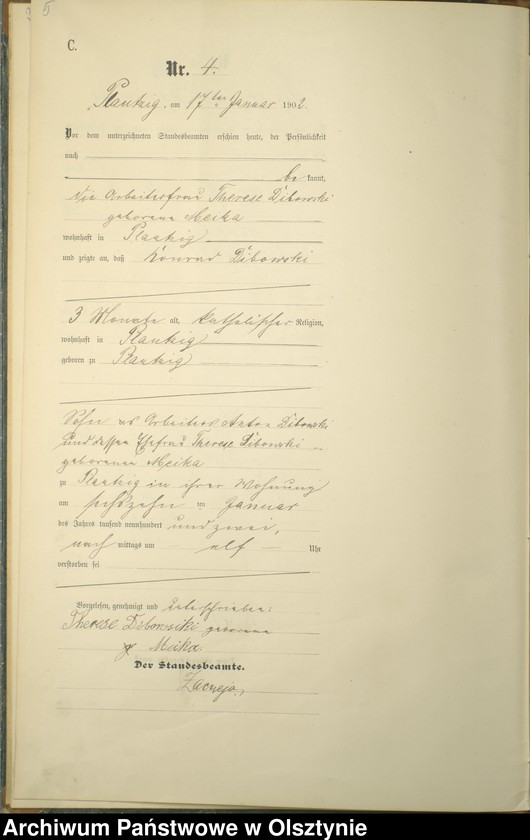 5
C.
Nr. 4.
Plautzig, am 17ten Januar 1902.
Vor dem unterzeichneten Standesbeamten erschien heute, der Persönlichkeit
nach
be kannt,
die Arbeiterfrau Therese Dibowski
geborene Meika
wohnhaft in Plautzig
und zeigte an, daß Konrad Dibowski
3 Monate alt, katholischer Religion,
wohnhaft in Plautzig
geboren zu Plautzig
Sohn des Arbeiters Anton Dibowski
und dessen Ehefrau Therese Dibowski
geborenen Meika
zu Plautzig in ihrer Wohnung
am sechszehn ten Januar
des Jahres tausend neunhundert und zwei,
nach mittags um elf Uhr
verstorben sei
Vorgelesen, genehmigt und unterschrieben:
Therese Dibowski geborene
Meika.
Der Standesbeamte.
Archiwum Państwowe w Olsztynie